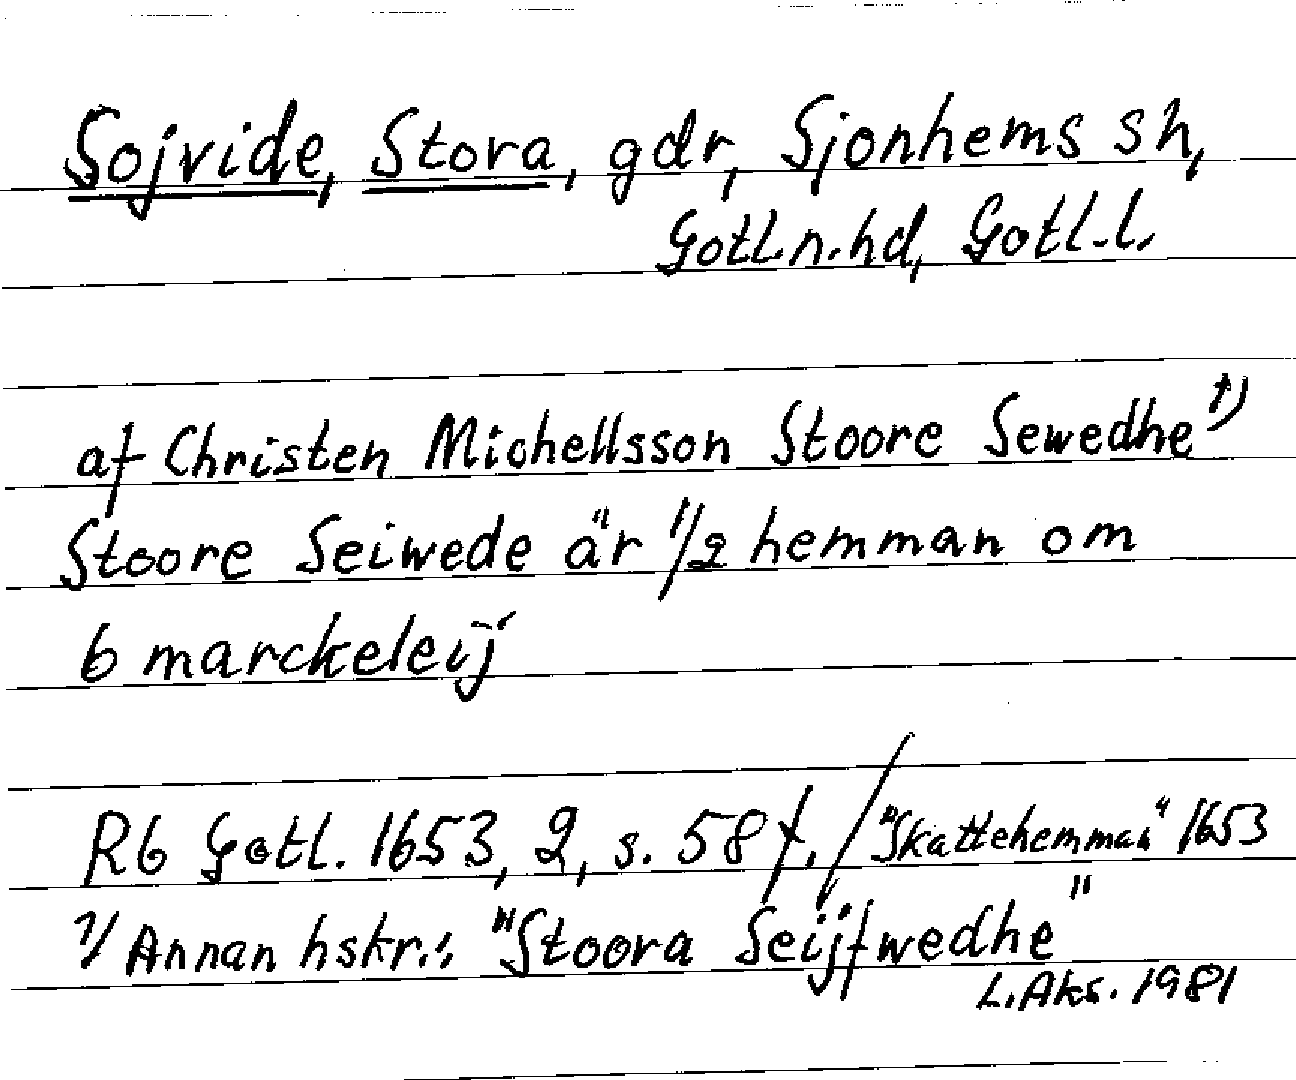 Sojvide, Stora, gdr, Sjonhems sn,
Gotl.n.hd, Gotl.l.
af Christen Michellsson Stoore Sewedhe 1)
Stoore Seiwede är 1/2 hemman om
6 marckeleij
Rb Gotl. 1653, 2, s. 58 f. / "Skattehemman" 1653
1/ Annan hskr.: "Stoora Seijfwedhe"
L. Aks. 1981